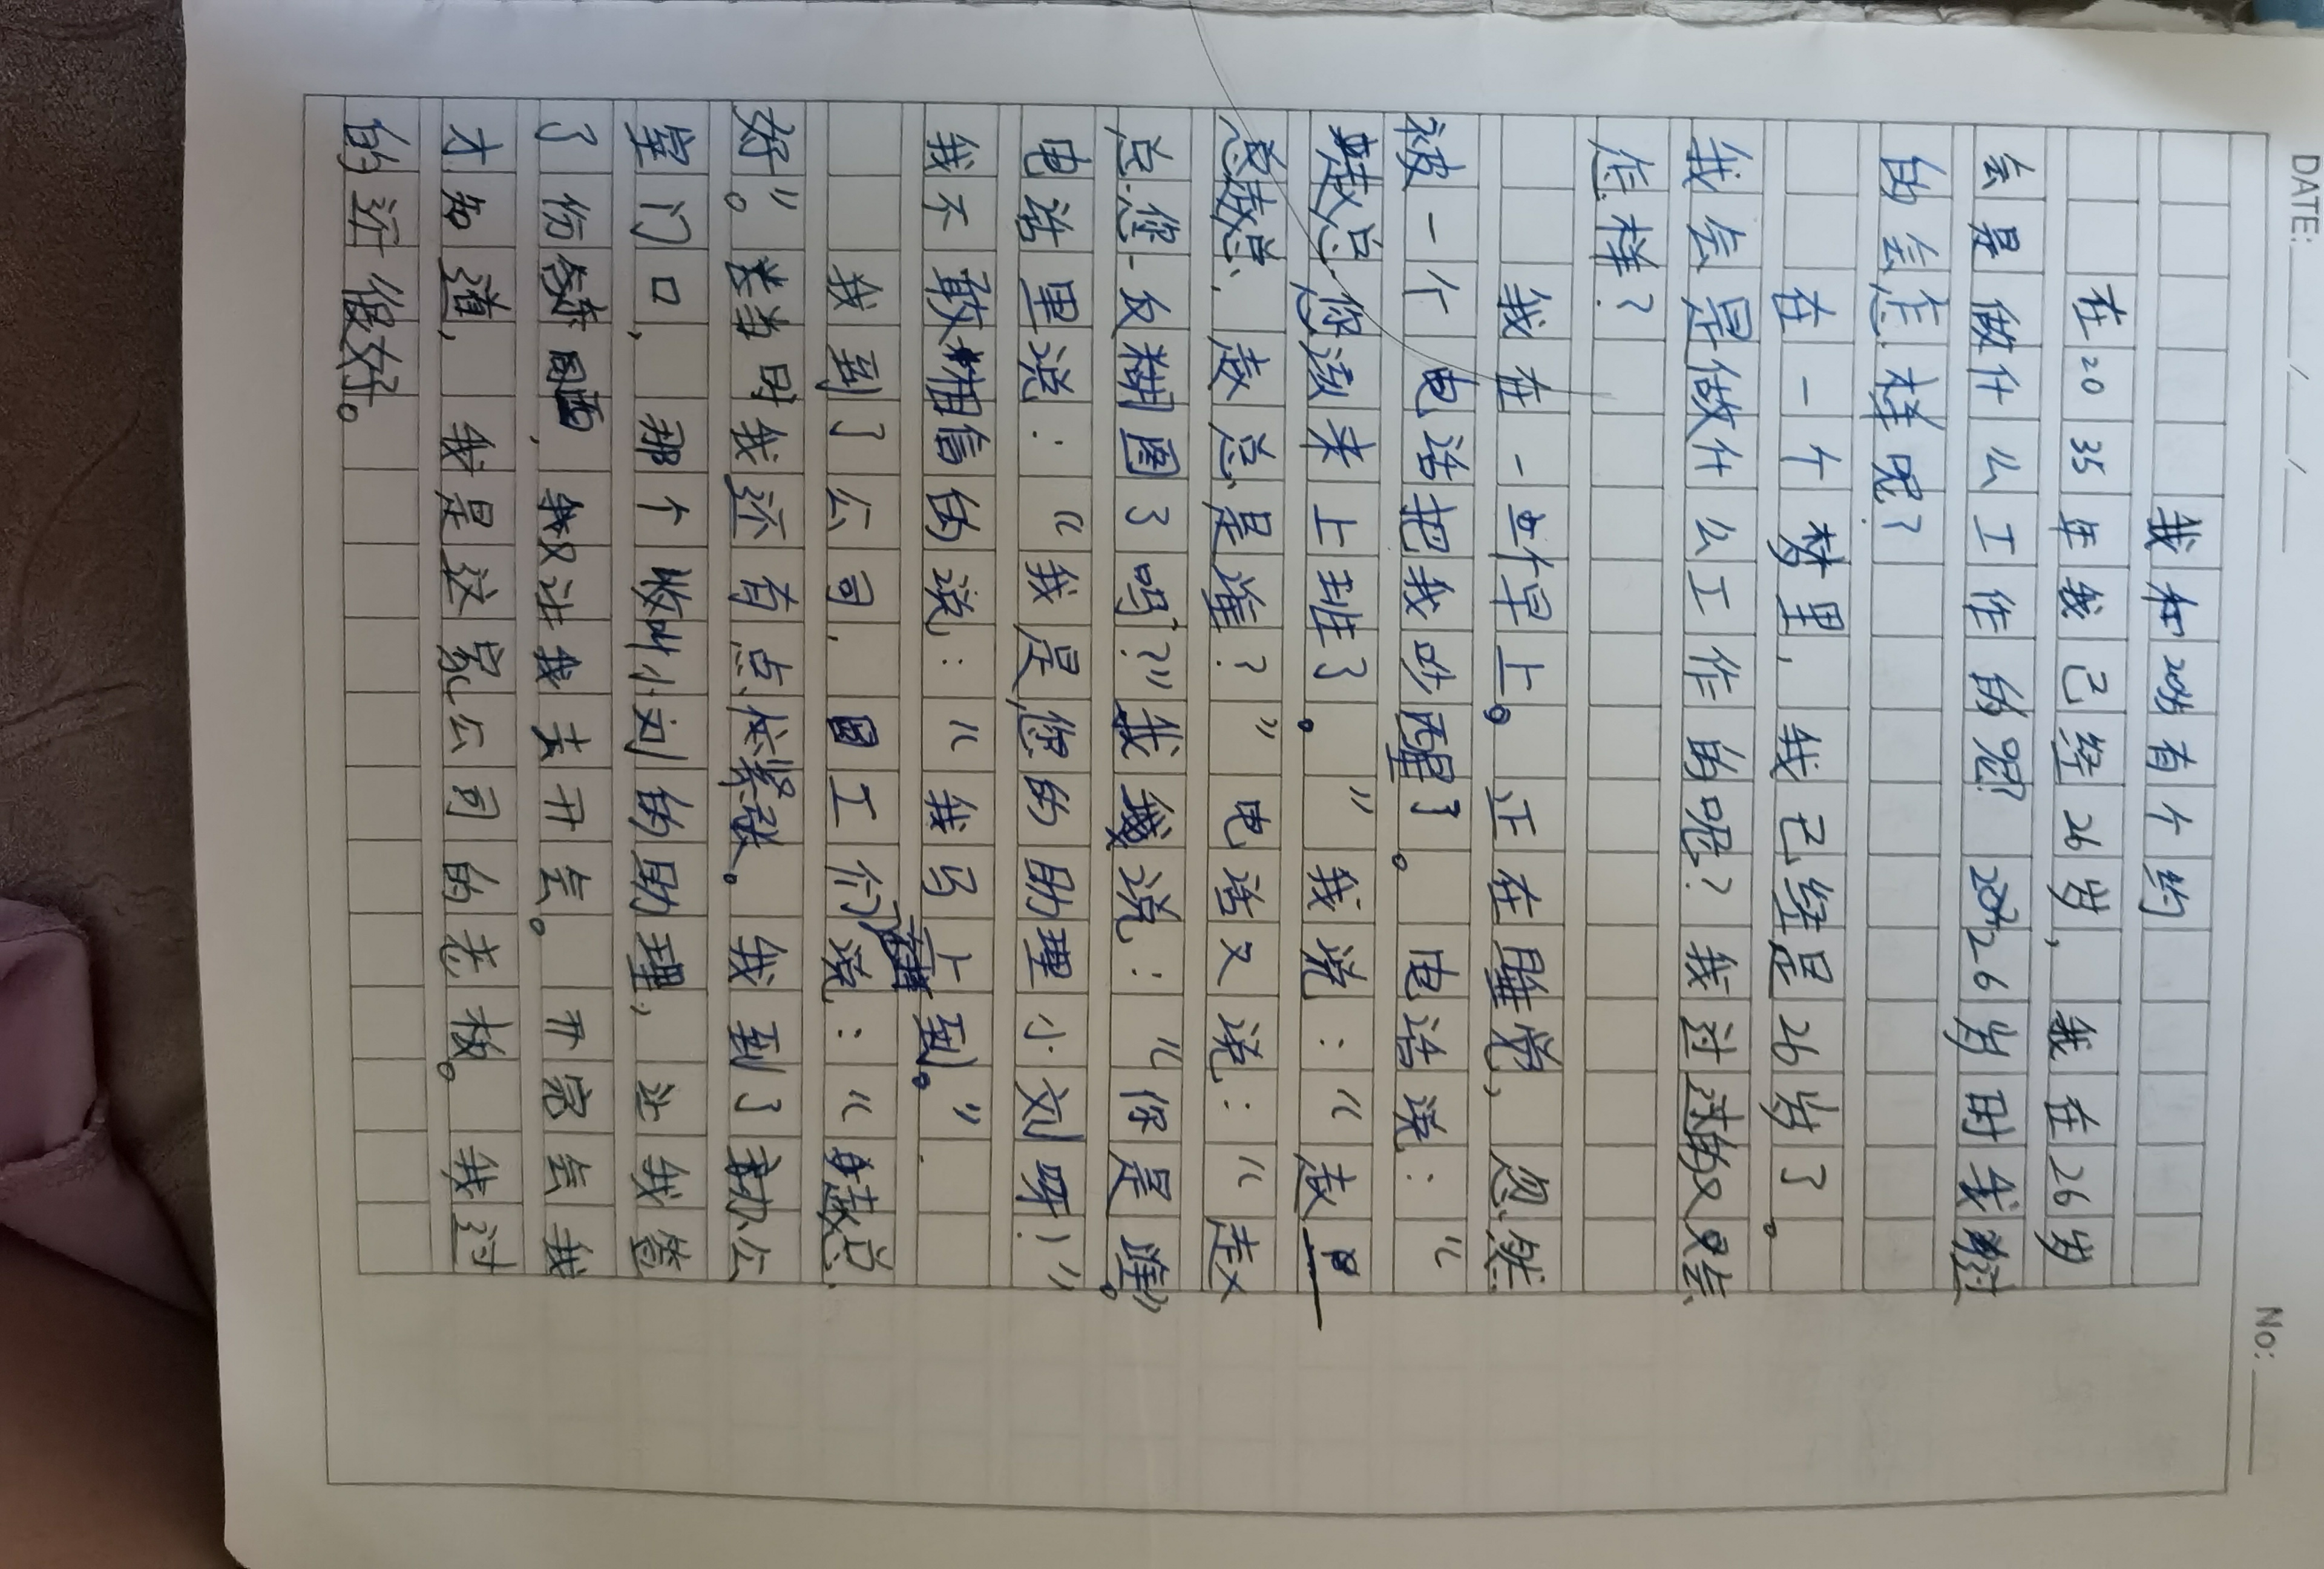 DATE: / /
No:
我和2035有个约
在2035年我已经26岁,我在26岁
会是做什么工作的呢?26岁时我过
的会怎样呢?
在一个梦里,我已经是26岁了。
我会是做什么工作的呢?我过的又会
怎样?
我在一早上。正在睡觉,忽然
被一个电话把我吵醒了。电话说:“
赵总您该来上班了。”我说:“赵
总,赵总是谁?”电话又说:“赵
总您一夂糊图了吗?”我说:“你是谁。”
电话里说:“我是您的助理小刘呀!”
我不敢相信的说:“我马上到。”
我到了公司,员工们说:“赵总
好”。当时我还有点紧张。我到了办公
室门口,那个叫小刘的助理,让我签
了份,又让我去开会。开完会我
才知道,我是这家公司的老板。我过
的还很好。